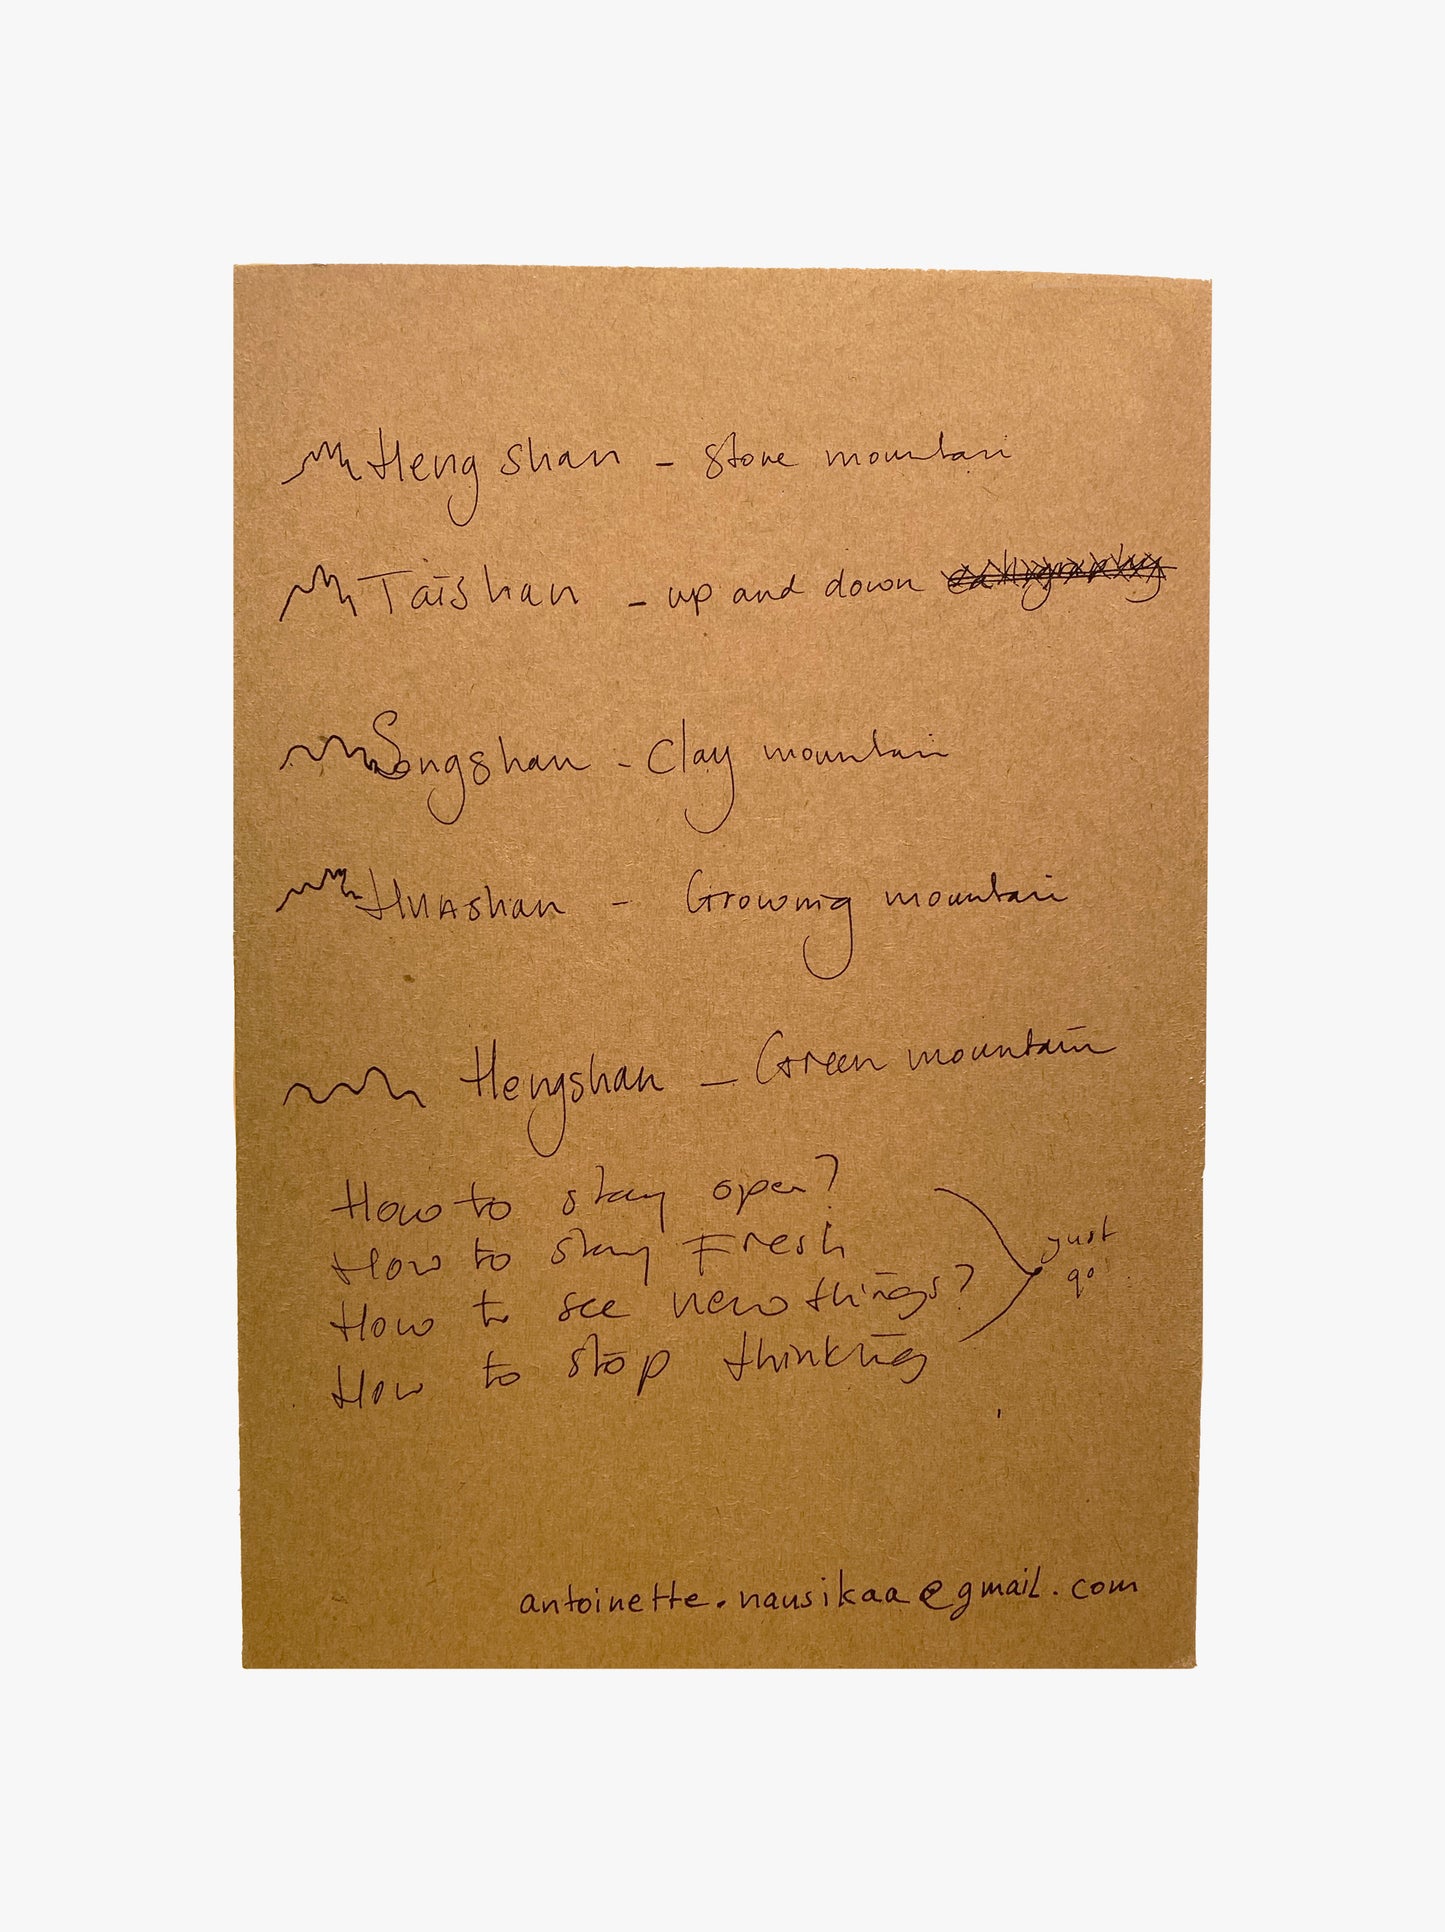 Heng shan - Stone mountain
Taishan - up and down calligraphy
Songshan - Clay mountain
Huashan - Growing mountain
Hengshan - Green mountain
How to stay open?
How to stay Fresh
How to see new things?
How to stop thinking
just
go
antoinette.nausikaa@gmail.com